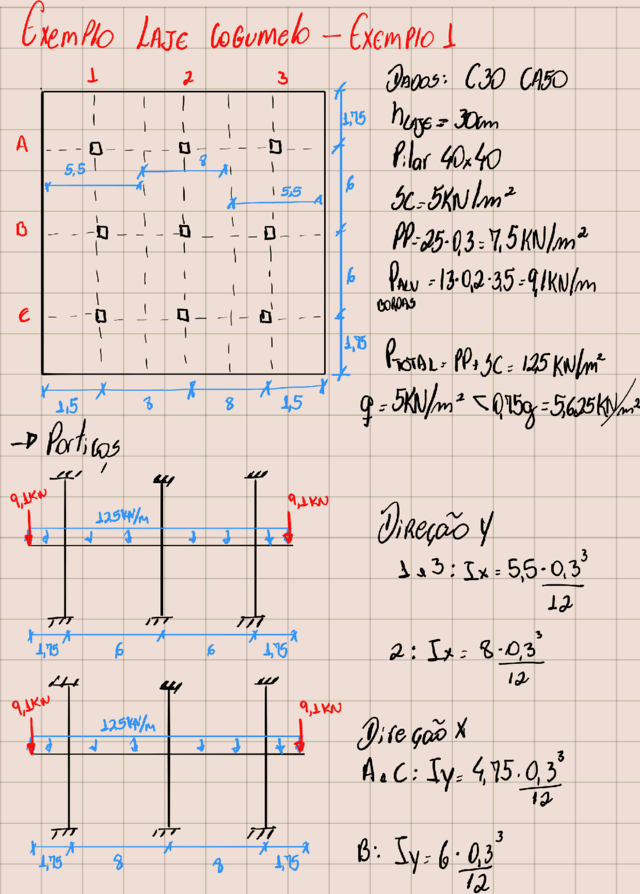 Exemplo Laje Cogumelo – Exemplo 1
1 2 3
Dados: C30 CA50
hLAJE = 30cm
Pilar 40x40
SC = 5KN/m²
PP = 25·0,3 = 7,5KN/m²
PALV = 13·0,2·3,5 = 9,1KN/m
BORDAS
PTOTAL = PP + SC = 12,5 KN/m²
q = 5KN/m² < 0,75g = 5,625KN/m²
A
B
C
5,5
8
5,5
1,75
6
6
1,75
1,5 8 8 1,5
→ Porticos
9,1KN
12,5KN/m
9,1KN
1,75 6 6 1,75
Direção Y
1 e 3: Ix = 5,5·0,3³
12
2: Ix = 8·0,3³
12
9,1KN
12,5KN/m
9,1KN
1,75 8 8 1,75
Direção X
A e C: Iy = 4,75·0,3³
12
B: Iy = 6·0,3³
12